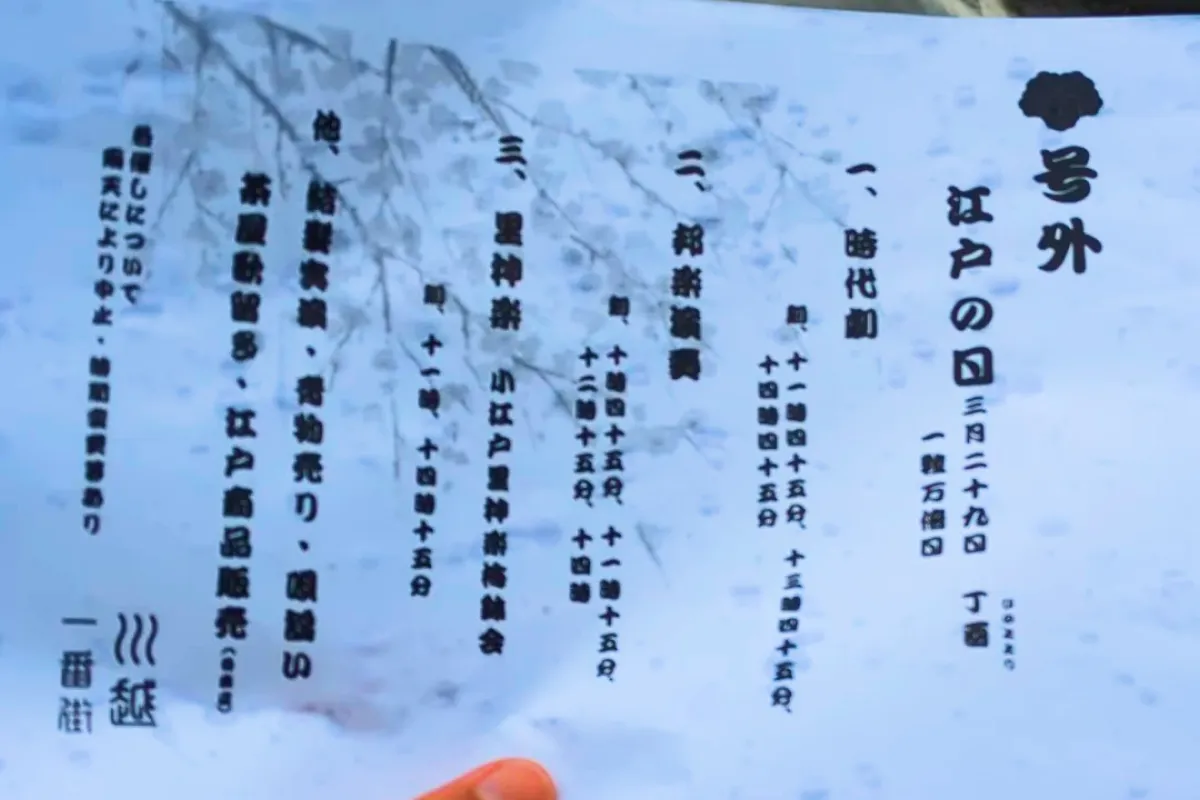 号外
江戸の日 三月二十九日 丁酉
一粒万倍日
一、時代劇
十一時四十五分、十三時四十五分、
十四時四十五分
二、邦楽演奏
十時四十五分、十一時十五分、
十二時十五分、十四時
三、里神楽 小江戸里神楽梅鉢会
十一時、十四時十五分
他、結髪実演・売物売り・唄謡い
茶屋歌留多・江戸商品販売
各催しについて
雨天により中止・時間変更等あり
川越
一番街